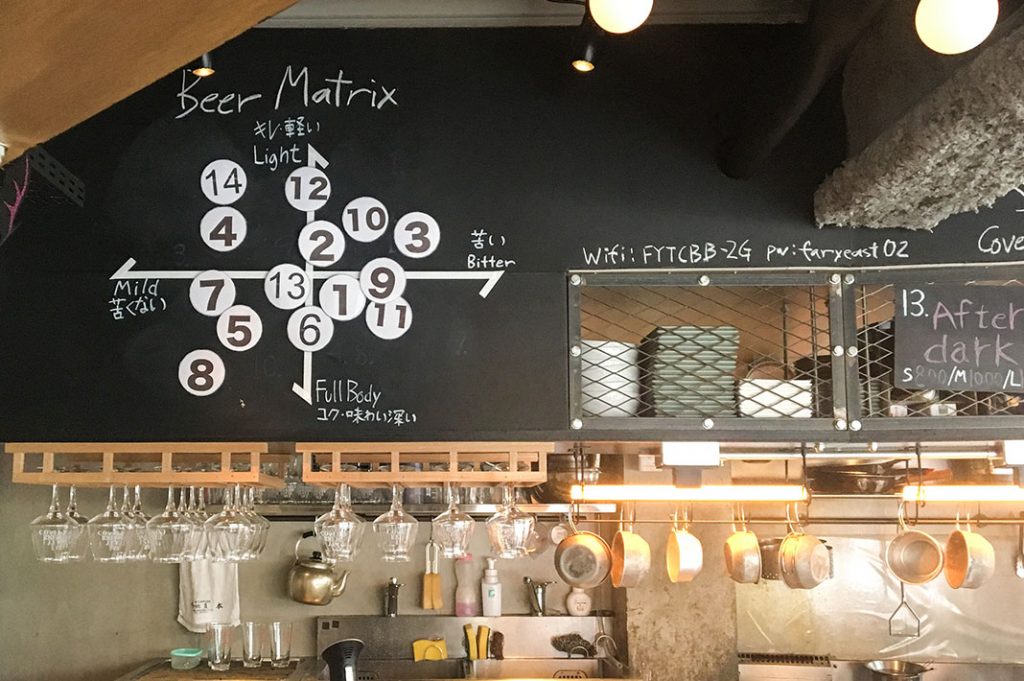 Beer Matrix
キレ・軽い
Light
14
12
10
4
2
3
苦い
Bitter
Wifi: FYTCBB-2G pw: faryeast02
Cove
Mild
苦くない
7
13
1
9
11
5
6
8
Full Body
コク・味わい深い
13. After
dark
S800/M1000/L